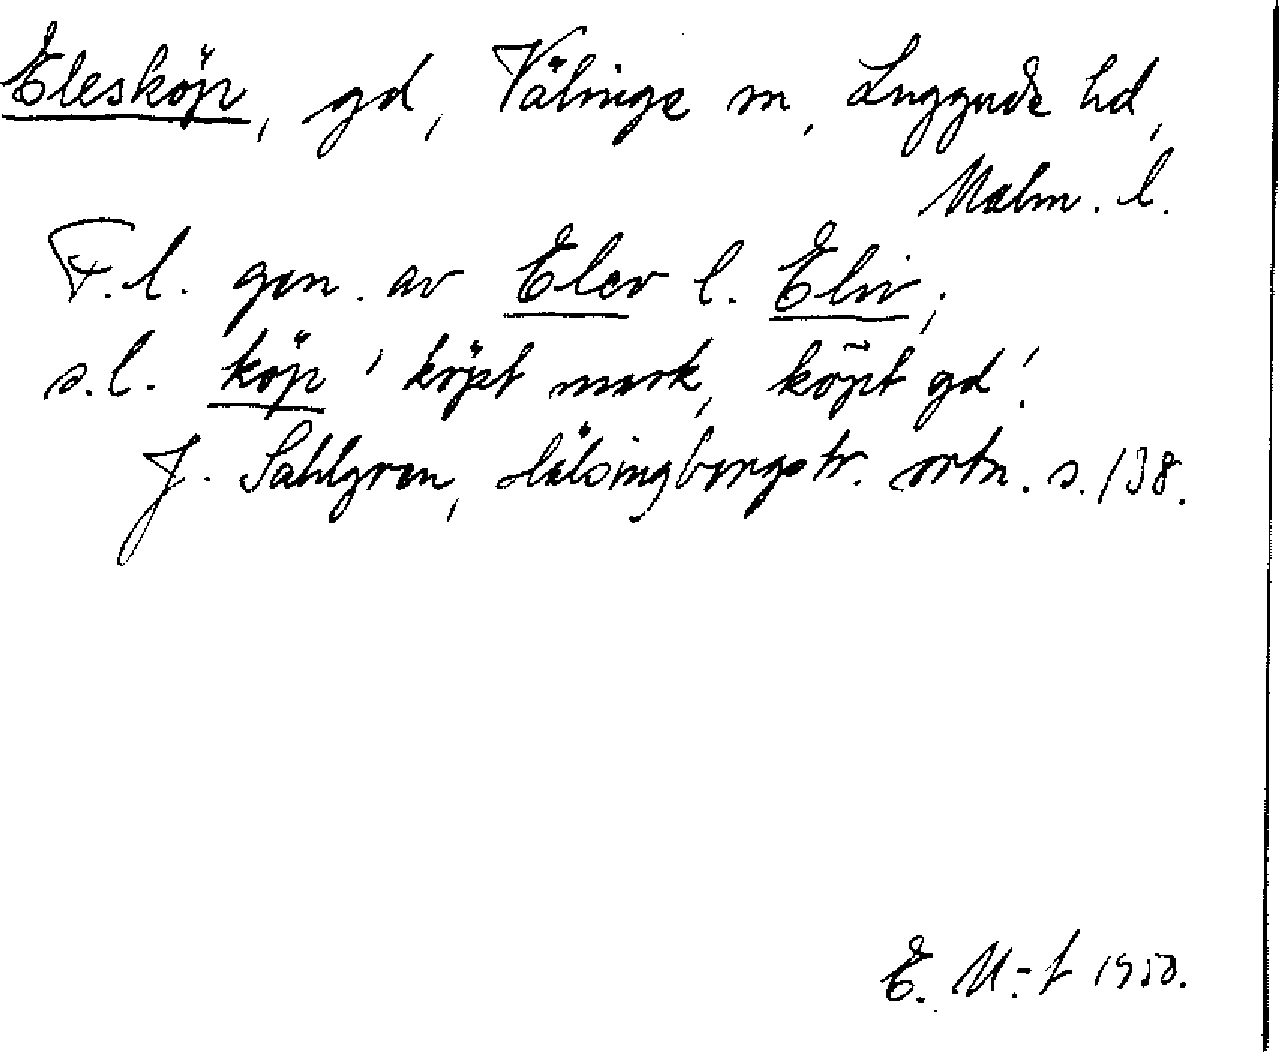 Elesköp, gd, Välinge sn, Luggude hd,
Malm. l.
F.l. gen. av Elev l. Eliv;
s.l. köp 'köpt mark, köpt gd'.
J. Sahlgren, Hälsingborgstr. ortn. s. 138.
E. M:t 1950.